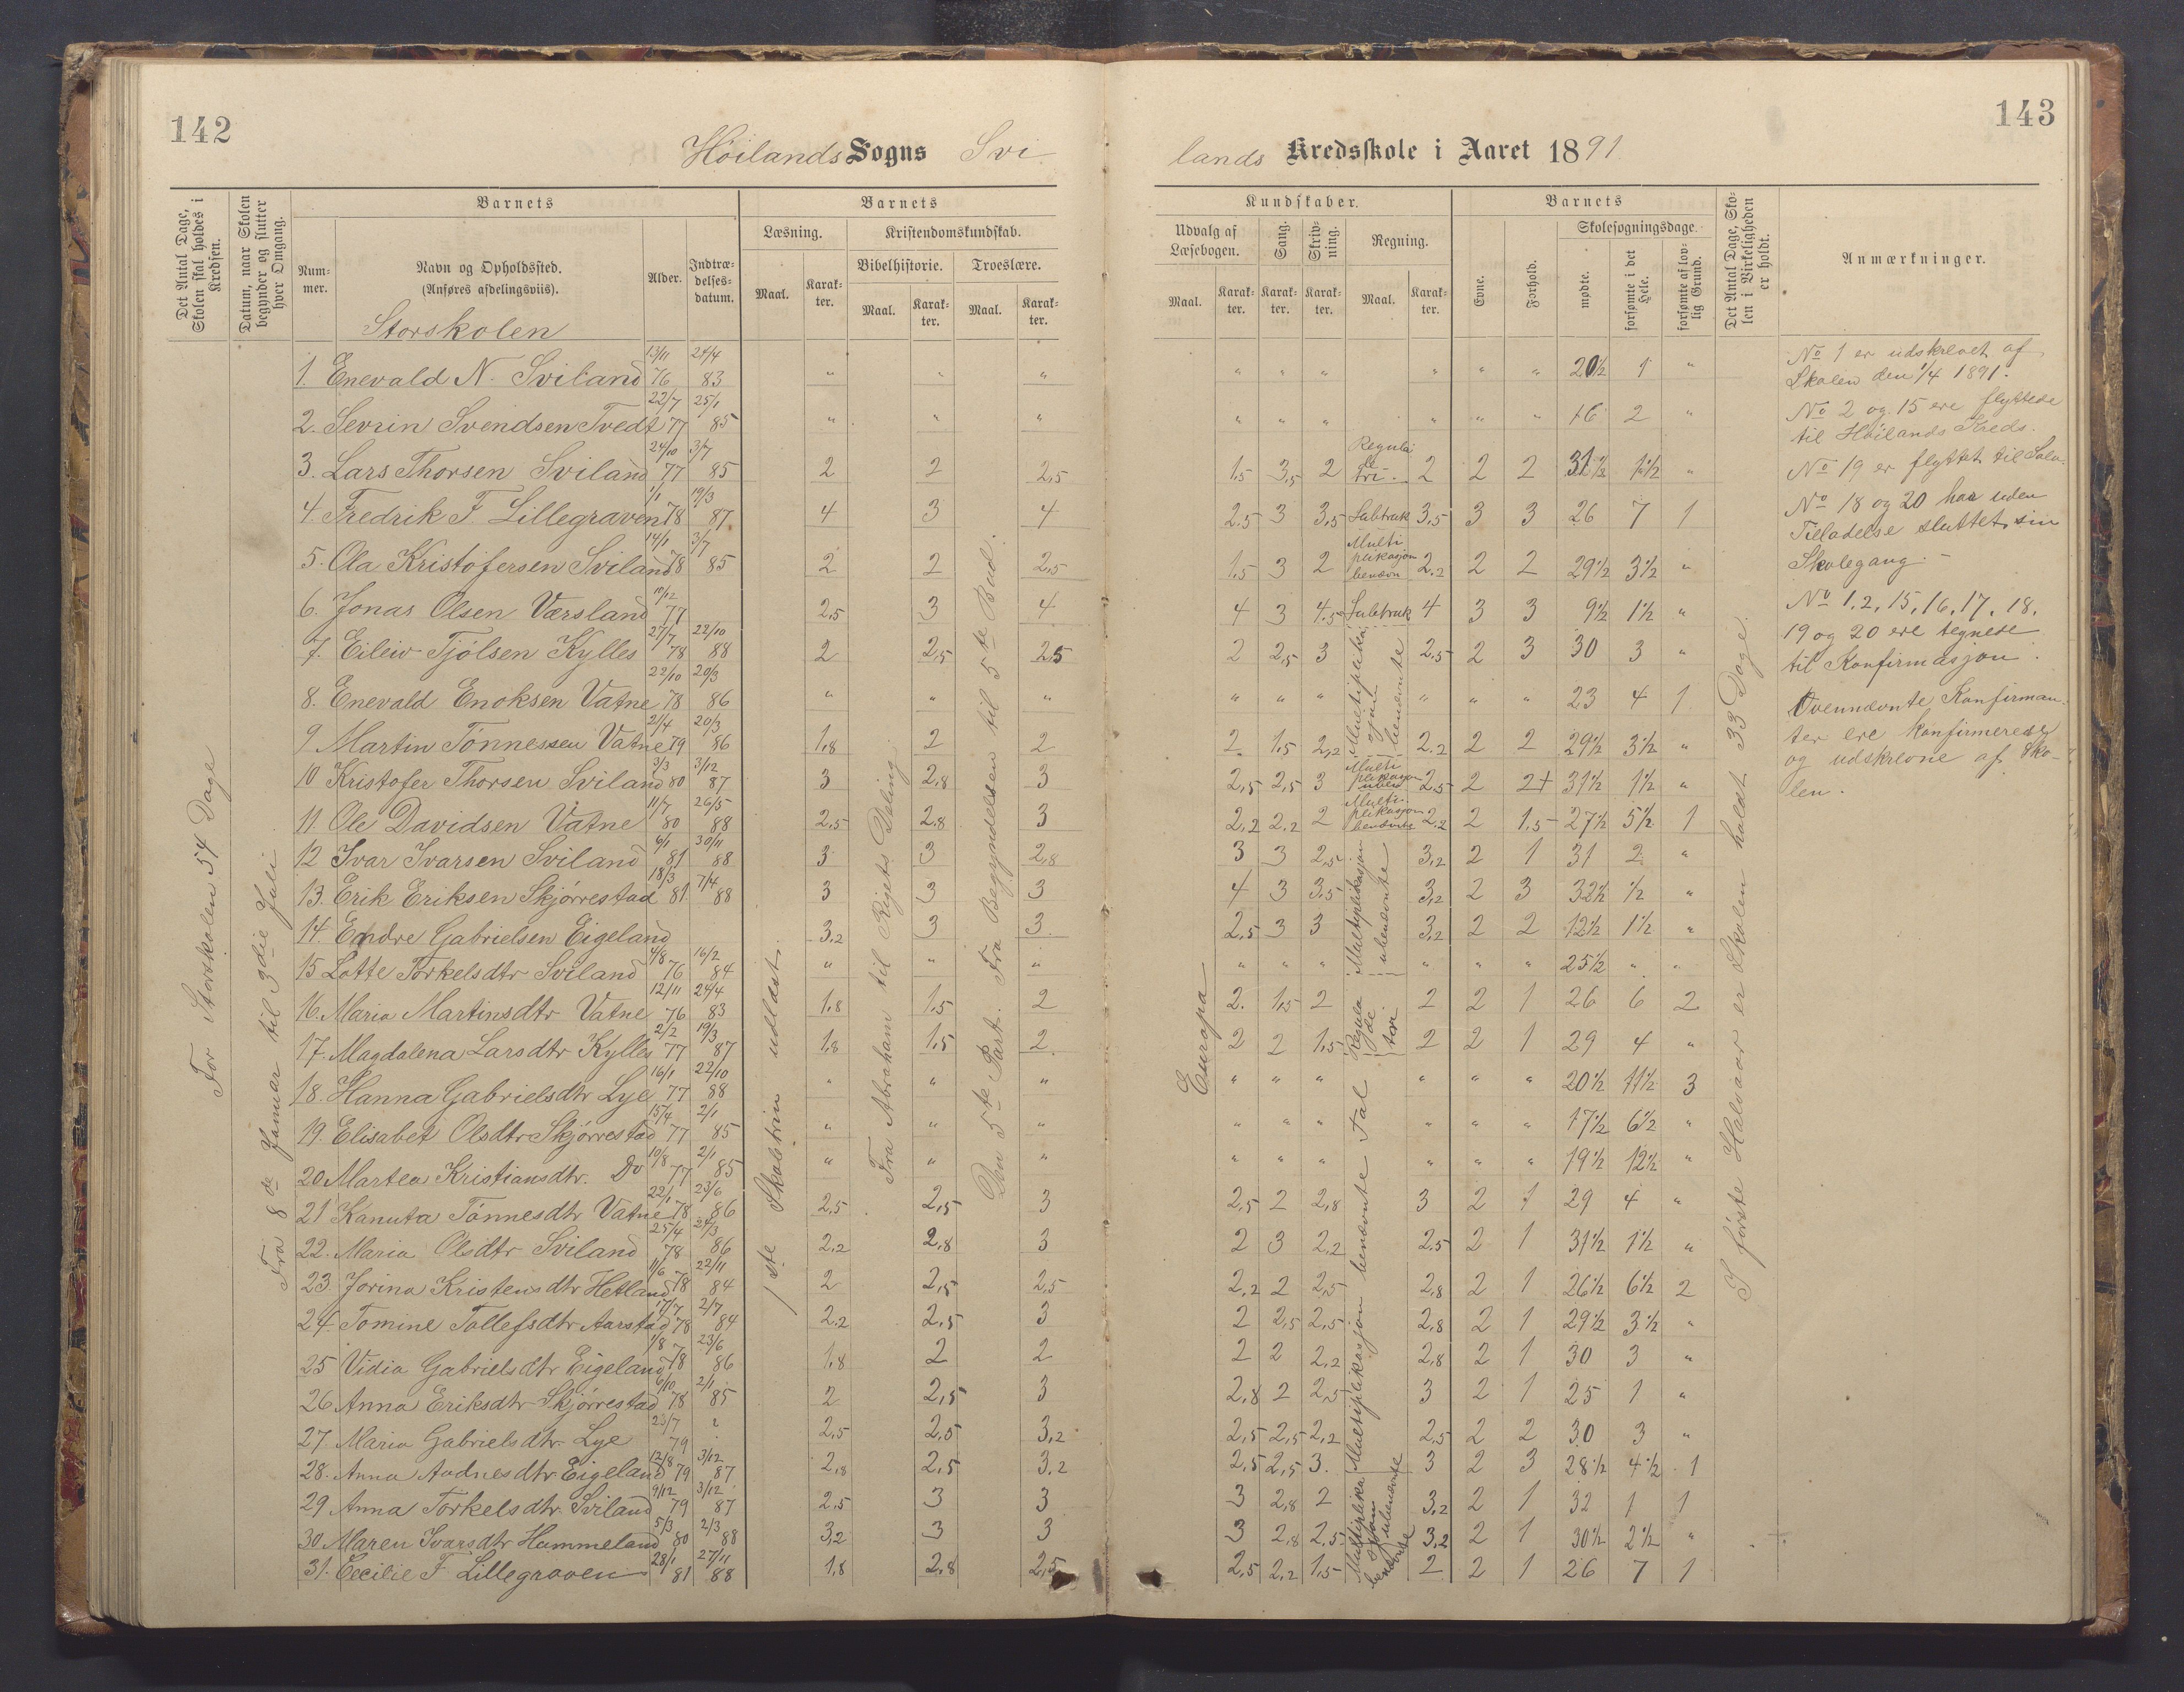 142
143
Höilands Sogns Svi
lands Kredsskole i Aaret 1891
Det Antal Dage, Skolen skal holdes i Kredsen.
Datum, naar Skolen begynder og slutter hver Omgang.
Barnets
Nummer.
Navn og Opholdssted.
(Anføres afdelingsviis).
Alder.
Indtrædelsesdatum.
Barnets
Læsning.
Maal.
Karakter.
Kristendomskundskab.
Bibelhistorie.
Maal.
Karakter.
Troeslære.
Maal.
Karakter.
Kundskaber.
Udvalg af Læsebogen.
Maal.
Karakter.
Sang.
Karakter.
Skrivning.
Karakter.
Regning.
Maal.
Karakter.
Barnets
Evne.
Forhold.
Skolesøgningsdage.
mødte.
forsømte i det Hele.
forsømte af lovlig Grund.
Det Antal Dage, Skolen i Virkeligheden er holdt.
Anmærkninger.
Storskolen
For Storskolen 54 Dage
Fra 8de Januar til 3die Juli
1ste Skoletrin udlæst.
Fra Abraham til Rigets Deling
Den 5te Part. Fra Begyndelsen til 5te Bud.
Europa
I første Halvaar er Skolen holdt 33 Dage.
1. Enevald N. Sviland 13/11 76 24/4 83 " " " " " " " " " 20 1/2 1 "
2. Sevrin Svendsen Tvedt 22/7 77 25/1 85 " " " " " " " " " 16 2 "
3. Lars Thorsen Sviland 24/10 77 3/7 85 2 2 2,5 1,5 3,5 2 Regula de tri. 2 2 2 31 1/2 1 1/2 "
4. Fredrik F. Lillegraven 1/1 78 19/3 87 4 3 4 2,5 3 3,5 Subtrak 3,5 3 3 26 7 1
5. Ola Kristofersen Sviland 14/1 78 3/7 85 2 2 2,5 1,5 3 2 Multiplikasjon benævn 2,2 2 2 29 1/2 3 1/2 "
6. Jonas Olsen Værsland 77 2,5 3 4 4 3 4,5 Subtrak 4 3 3 9 1/2 1 1/2 "
7. Eileiv Tjölsen Kylles 27/7 78 22/10 88 2 2,5 2,5 2 2,5 3 Multiplikasjon benævnte 2,5 2 3 30 3 "
8. Enevald Enoksen Vatne 22/10 78 20/3 86 " " " " " " " " " 23 4 1
9 Martin Tönnessen Vatne 2/4 79 20/3 86 1,8 2 2 2 1,5 2,2 2,2 2 2 29 1/2 3 1/2 "
10 Kristofer Thorsen Sviland 3/3 80 3/12 87 3 2,8 3 2,5 2,5 3 Multiplikasjon uben 2,5 2 2+ 31 1/2 1 1/2 "
11. Ole Davidsen Vatne 11/7 80 26/5 88 2,5 2,8 3 2,2 2,2 2 Multiplikasjon benævnte 2,2 2 1,5 27 1/2 5 1/2 1
12 Ivar Ivarsen Sviland 6/1 81 30/11 88 3 3 2,8 3 3 2,5 Multiplikasjon ubenævnte 3,2 2 1 31 2 "
13. Erik Eriksen Skjörrestad 18/3 81 7/4 88 3 3 3 4 3 3,5 3,2 2 3 32 1/2 1/2 "
14. Endre Gabrielsen Eigeland 3,2 3 3 2,5 3 3 3,2 2 2 12 1/2 1 1/2 "
15 Lotte Torkelsdtr Sviland 4/8 76 16/2 84 " " " " " " " " " 25 1/2 " "
16. Maria Martinsdtr Vatne 12/11 76 24/4 83 1,8 1,5 2 2. 1,5 2 Regula de tri 2 2 1 26 6 2
17. Magdalena Larsdtr Kylles 2/2 77 19/3 87 1,8 1,5 2 2 2 1,5 2 2 1 29 4 "
18. Hanna Gabrielsdtr Lye 16/1 77 22/10 88 " " " " " " " " " 20 1/2 11 1/2 3
19. Elisabet Olsdtr Skjörrestad 15/4 77 2/1 85 " " " " " " " " " 17 1/2 6 1/2 "
20 Martea Kristiansdtr. Do 10/8 77 2/1 85 " " " " " " " " " 19 1/2 12 1/2 "
21 Kanuta Tönnesdtr Vatne 22/1 78 23/6 86 2,5 2,5 3 2,5 2 2,8 Multiplikasjon benævnte Tal 3 2 1 29 4 "
22. Maria Olsdtr Sviland 25/4 78 24/3 86 2,2 2,8 3 2 3 2,2 2,5 2 1 31 1/2 1 1/2 "
23 Jorina Kristensdtr Hetland 11/6 78 22/11 84 2 2,5 2,5 2,2 2 2,5 2,8 2 1 26 1/2 6 1/2 2
24. Tomine Tollefsdtr Aarstad 17/7 78 2/7 84 2,2 2,5 3 2 2,5 2,5 2,8 2 1 29 1/2 3 1/2 "
25 Vidia Gabrielsdtr Eigeland 1/8 78 23/6 86 1,8 2 2 2 2 2,2 2,8 2 1 30 3 "
26 Anna Eriksdtr Skjörrestad 6/10 78 2/1 85 2 2,5 3 2,8 2 2,5 3 2 1 25 1 "
27. Maria Gabrielsdtr. Lye 23/7 79 2,5 2,5 3,2 2,5 2,5 2,2 2,5 2 2 30 3 "
28. Anna Aadnesdtr Eigeland 12/8 79 3/12 87 2,8 2,5 3,2 2,5 2,5 3. 3 2 3 28 1/2 4 1/2 1
29 Anna Torkelsdtr. Sviland 9/12 79 3/12 87 2,5 3 3 3 2,8 2 Multiplikasjon benævnte 3,2 2 1 32 1 1
30 Maren Ivarsdtr Hommeland 5/3 80 2/3 88 3,2 3 3 3 2,8 2,5 ubenævnte 3,2 2 1 30 1/2 2 1/2 "
31. Cecilie F. Lillegraven 28/1 81 27/11 88 1,8 2,8 2,5 2,5 2,2 1,5 2 2 1 26 7 1
No 1 er udskrevet af
Skolen den 1/4 1891.
No 2 og 15 ere flyttede
til Höilands Kreds.
No 19 er flyttet til Sola.
No 18 og 20 har uden
Tilladelse sluttet sin
Skolegang. -
No 1, 2, 15, 16, 17, 18,
19 og 20 ere tegnede
til Konfirmasjon.
Ovennævnte Konfirman-
ter ere konfirmerede
og udskrevne af Sko-
len.